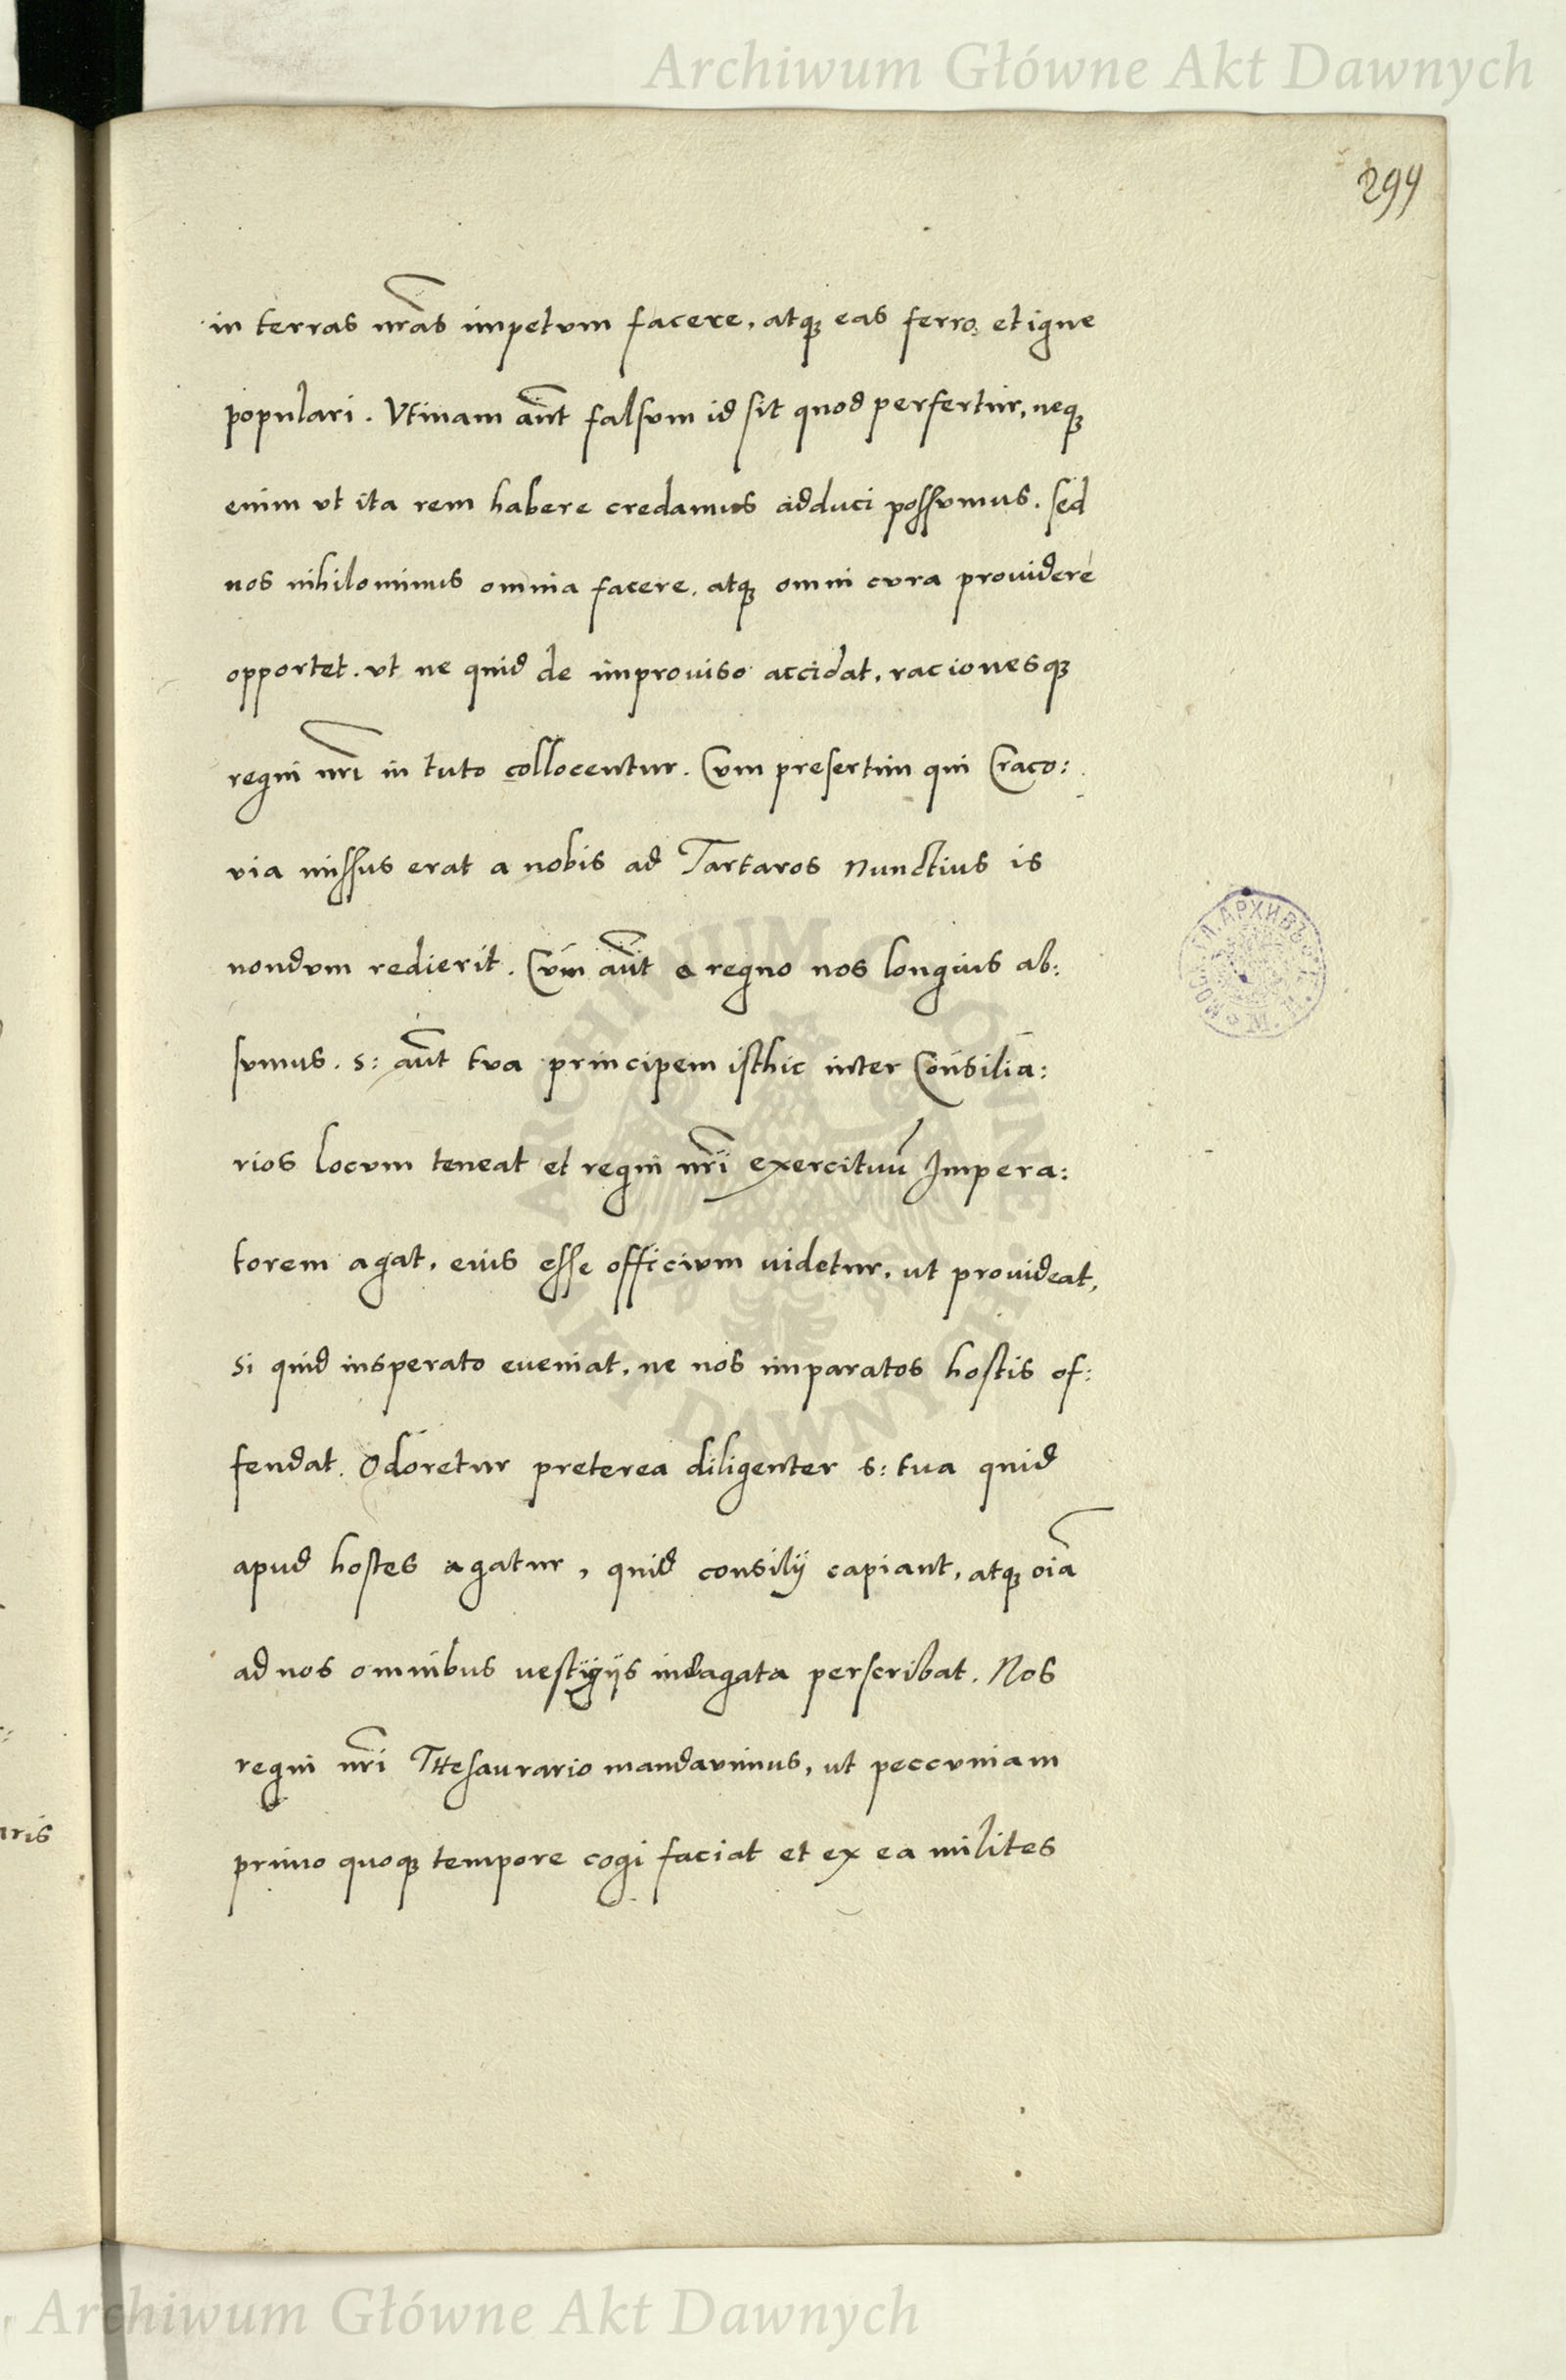 Archiwum Główne Akt Dawnych
294
in terras nr̃as impetvm facere, atqꝫ eas ferro, et igne
populari. Vtinam aũt falsvm id sit quod perfertur, neqꝫ
enim vt ita rem habere credamus adduci possvmus. sed
nos nihilominus omnia facere, atqꝫ omni cvra prouidere
opportet. vt ne quid de improuiso accidat, racionesqꝫ
regni nr̃i in tuto collocentur. Cvm presertim qui Craco:
via missus erat a nobis ad Tartaros Nunctius is
nondvm redierit. Cvm aũt a regno nos longius ab:
svmus. s: aũt tva principem isthic inter Consilia:
rios locvm teneat et regni nr̃i exercituũ Impera:
torem agat, eius esse officivm uidetur, ut prouideat,
si quid insperato eveniat, ne nos imparatos hostis of:
fendat. Odoretur preterea diligenter s: tua quid
apud hostes agatur, quid consilij capiant, atqꝫ oĩa
ad nos omnibus uestigijs indagata perscribat. Nos
regni nr̃i Thesaurario mandavimus, ut peccvniam
primo quoqꝫ tempore cogi faciat et ex ea milites
Archiwum Główne Akt Dawnych